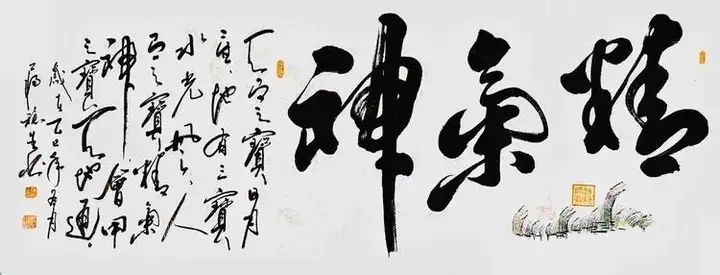 精氣神
天有三寶日月
星地有三寶
水火风人
有三寶精氣
神會用
三寶天地通
歲在乙巳年